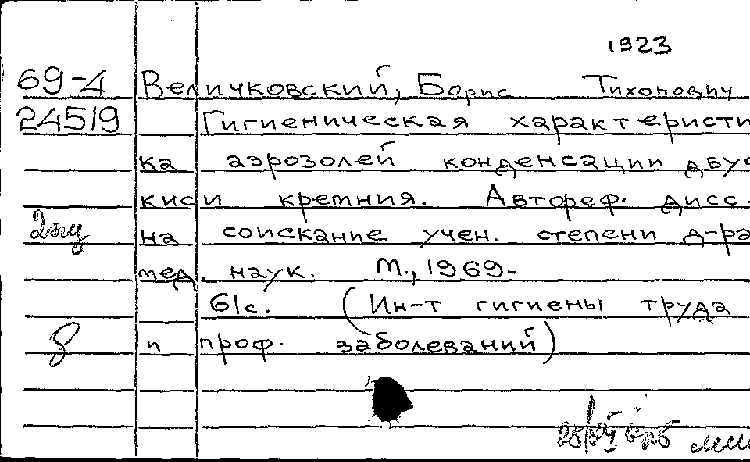 1923
69-4 Величковский, Борис Тихонович
24519 Гигиеническая характеристи
ка аэрозолей конденсации двус
киси кремния. Автореф. дисс.
2 экз на соискание учен. степени д-ра
мед. наук. М., 1969.
61с. (Ин-т гигиены труда
8 и проф. заболеваний)